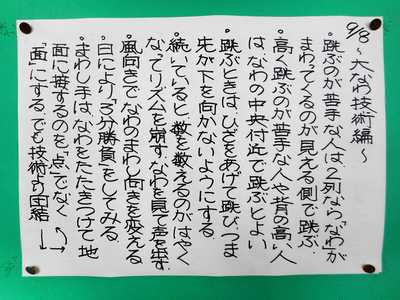 9/8 〜大なわ技術編〜
・跳ぶのが苦手な人は、2列なら、なわが
まわってくるのが見える側で跳ぶ。
・高く跳ぶのが苦手な人や背の高い人
は、なわの中央付近で跳ぶとよい
・跳ぶときは、ひざをあげて跳び、つま
先が下を向かないようにする
・続いていると、数を数えるのがはやく
なってリズムを崩す。なわを見て声を出す。
・風向きでなわのまわし向きを変える
・日により、3分勝負をしてみる。
・まわし手は、なわをたたきつけて地
面に接するのを「点」でなく
「面」にする でも技術より団結